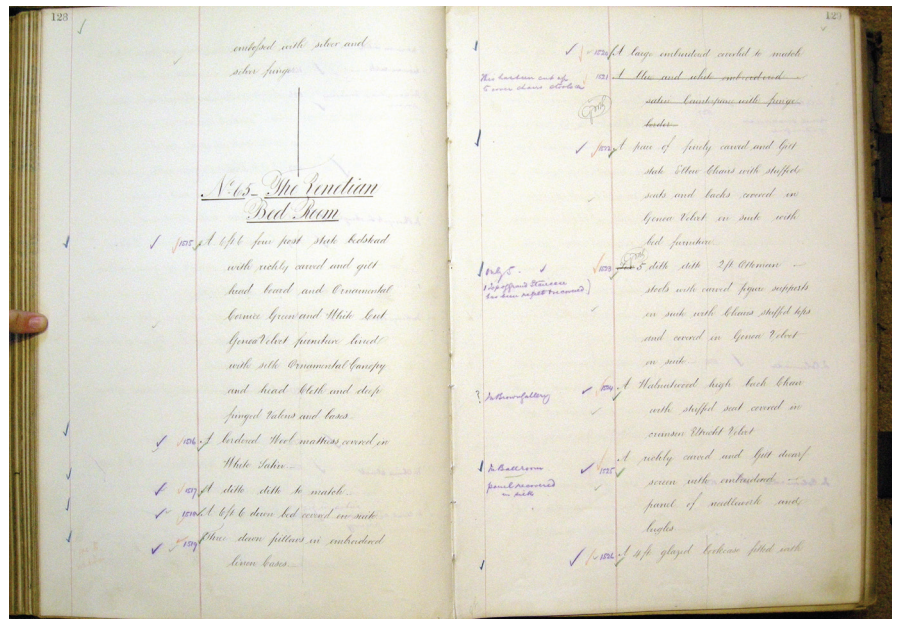 128
embossed with silver and
silver fringe
No. 65 – The Venetian
Bed Room
1515 A 6 ft 6 four post state bedstead
with richly carved and gilt
head board and Ornamental
Cornice Green and White Cut
Genoa Velvet furniture lined
with silk Ornamental Canopy
and head Cloth and deep
fringed Valens and bases
1516 A bordered Wool mattress covered in
White Satin
1517 A ditto ditto to match
1518 A 6 ft 6 down bed covered en suite
1519 Three down pillows in embroidered
linen Cases
129
1520 A large embroidered coverlid to match
1521 A blue and white embroidered
satin Counterpane with fringe
border
1522 A pair of finely carved and Gilt
state Elbow Chairs with stuffed
seats and backs covered in
Genoa Velvet en suite with
bed furniture
Only 5
1523 Six 5 ditto ditto 2 ft Ottoman
stools with carved figure supports
en suite with Chairs stuffed tops
and covered in Genoa Velvet
en suite
1524 A Walnutwood high back Chair
with stuffed seat covered in
crimson Utrecht Velvet
In Ball room
panel recovered
in silk
1525 A richly carved and Gilt dwarf
screen with embroidered
panel of needlework and
bugles
1526 A 4 ft glazed bookcase fitted with